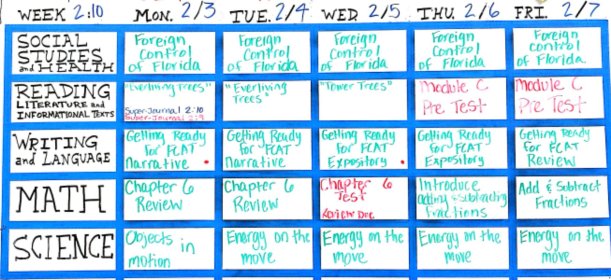 WEEK 2:10 MON. 2/3 TUE. 2/4 WED. 2/5 THU. 2/6 FRI. 2/7
SOCIAL
STUDIES
and HEALTH
Foreign
Control
of Florida
Foreign
Control
of Florida
Foreign
Control
of Florida
Foreign
Control
of Florida
Foreign
Control
of Florida
READING
LITERATURE and
INFORMATIONAL TEXTS
"Everliving Trees"
Super-Journal 2:10
Super-Journal 2:9
"Everliving
Trees"
"Tower Trees"
Module C
Pre Test
Module C
Pre Test
WRITING
and LANGUAGE
Getting Ready
for FCAT
Narrative
Getting Ready
for FCAT
Narrative
Getting Ready
for FCAT
Expository
Getting Ready
for FCAT
Expository
Getting Ready
for FCAT
Review
MATH
Chapter 6
Review
Chapter 6
Review
Chapter 6
Test
Review Due
Introduce
adding & subtracting
fractions
Add & Subtract
Fractions
SCIENCE
Objects in
motion
Energy on the
move
Energy on the
move
Energy on the
move
Energy on the
move